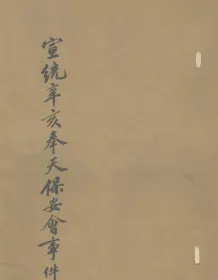 宣統辛亥奉天保安會事件